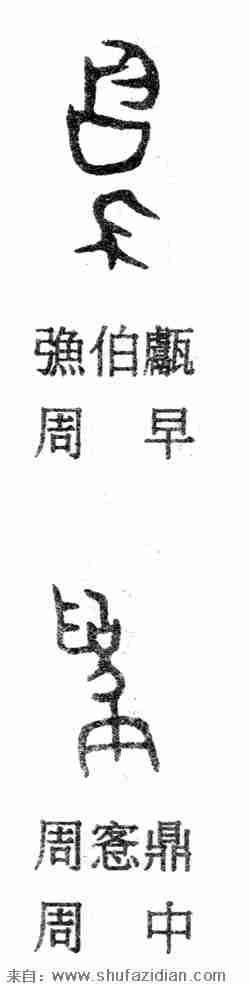 伯甗
周 早
周愙鼎
周 中
来自：www.shufazidian.com